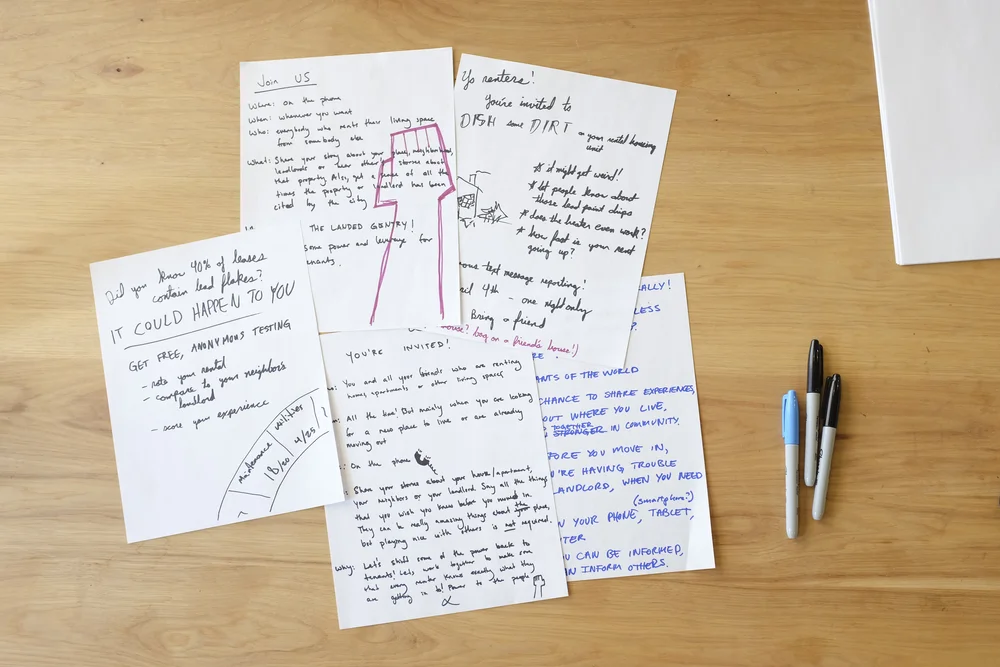 Join US
Where: on the phone
When: whenever you want
Who: everybody who rents their living space
from somebody else
What: Share your story about your place, neighborhood,
landlords or hear other stories about
that property. Also, get a sense of all the
times the property or landlord has been
cited by the city
THE LANDED GENTRY!
some power and leverage for
enants.
Yo renters!
You're invited to
DISH some DIRT on your rental housing
unit
* it might get weird!
* let people know about
those lead paint chips
* does the heater even work?
* how fast is your rent
going up?
ome text message reporting!
il 4th - one night only
Bring a friend
house? bag on a friend's house!)
Did you know 40% of leases
contain lead flakes?
IT COULD HAPPEN TO YOU
GET FREE, ANONYMOUS TESTING
- rate your rental
- compare to your neighbor's
landlord
- score your experience
maintenance
18/20
utilities
4/25
YOU'RE INVITED!
You and all your friends who are renting
homes, apartments or other living spaces
All the time! But mainly when you are looking
for a new place to live or are already
moving out
: On the phone
Share your stories about your house/apartment,
your neighbors or your landlord. Say all the things
that you wish you knew before you moved in.
They can be really amazing things about the place,
but playing nice with others is not required.
Why: Let's shift some of the power back to
tenants! Let's work together to make sure
that every renter knows exactly what they
are getting in to! Power to the people
EALLY!
LESS
?
RE
ANTS OF THE WORLD
CHANCE TO SHARE EXPERIENCES,
OUT WHERE YOU LIVE,
TOGETHER
STRONGER IN COMMUNITY.
FORE YOU MOVE IN,
U'RE HAVING TROUBLE
LANDLORD, WHEN YOU NEED
(smartphone?)
N YOUR PHONE, TABLET,
TER
U CAN BE INFORMED,
AN INFORM OTHERS.